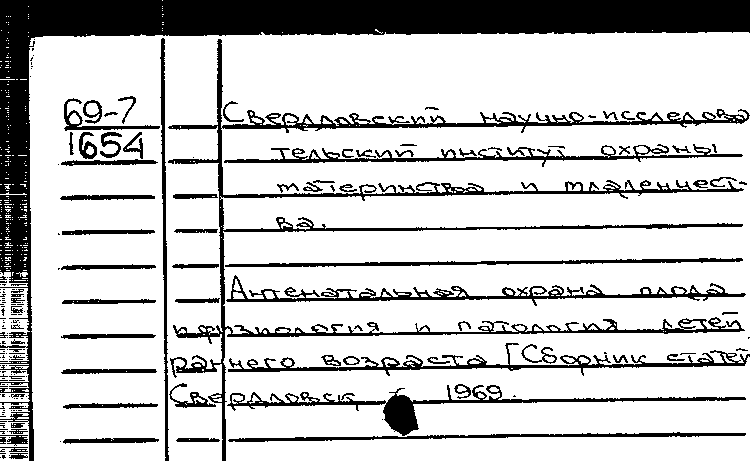 69-7
1654
Свердловский научно-исследова
тельский институт охраны
материнства и младенчест-
ва.
Антенатальная охрана плода
и физиология и патология детей
раннего возраста [Сборник статей
Свердловск 1969.